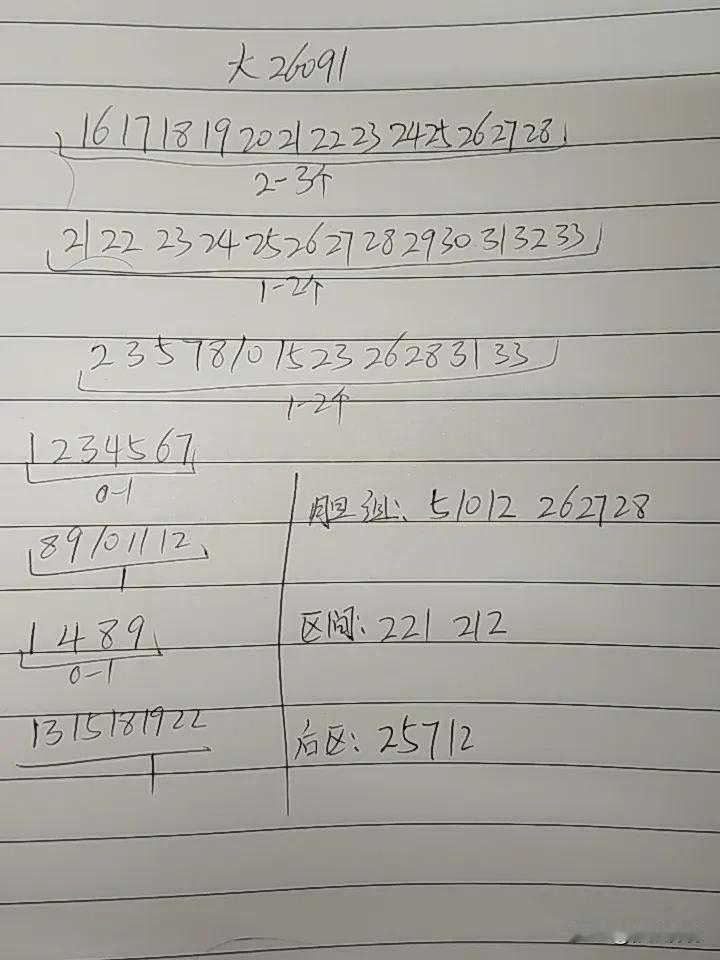 大26091
16 17 18 19 20 21 22 23 24 25 26 27 28
2-3个
21 22 23 24 25 26 27 28 29 30 31 32 33
1-2个
2 3 5 7 8 10 15 23 26 28 31 33
1-2个
1 2 3 4 5 6 7
0-1
8 9 10 11 12
1
1 4 8 9
0-1
13 15 18 19 22
1
胆组: 5 10 12 26 27 28
区间: 221 212
后区: 2 5 7 12